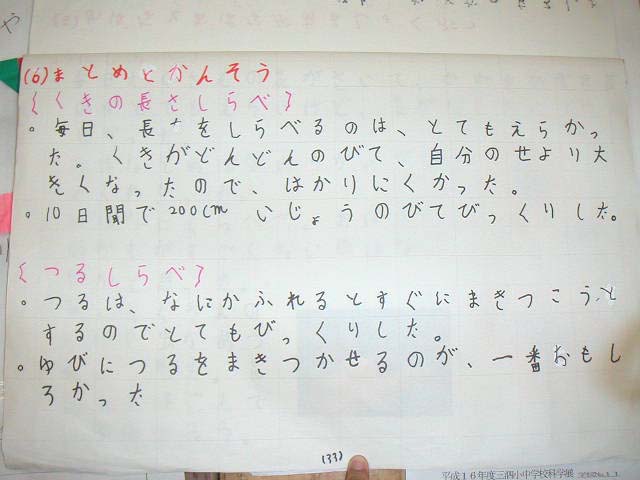 や
(6)まとめとかんそう
{くきの長さしらべ}
。毎日、長さをしらべるのは、とてもえらかっ
た。くきがどんどんのびて、自分のせより大
きくなったので、はかりにくかった。
。10日間で200cmいじょうのびてびっくりした。
{つるしらべ}
。つるは、なにかふれるとすぐにまきつこうと
するのでとてもびっくりした。
。ゆびにつるをまきつかせるのが、一番おもし
ろかった
(33)
平成16年度三泗小中学校科学展